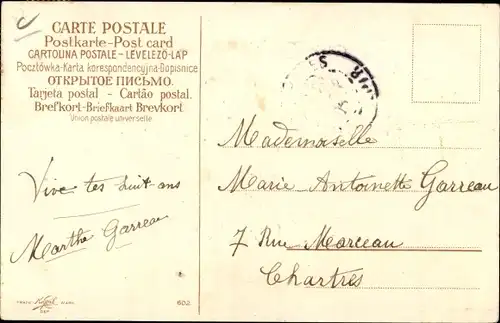 CARTE POSTALE
Postkarte-Post card
CARTOLINA POSTALE - LEVELEZŐ-LAP
Pocztówka-Karta korespondencyjna-Dopisnice
ОТКРЫТОЕ ПИСЬМО.
Tarjeta postal - Cartão postal.
Brefkort-Briefkaart Brevkort
Union postale universelle
Vive tes huit ans
Marthe Garreau
Mademoiselle
Marie Antoinette Garreau
7 Rue Marceau
Chartres
602